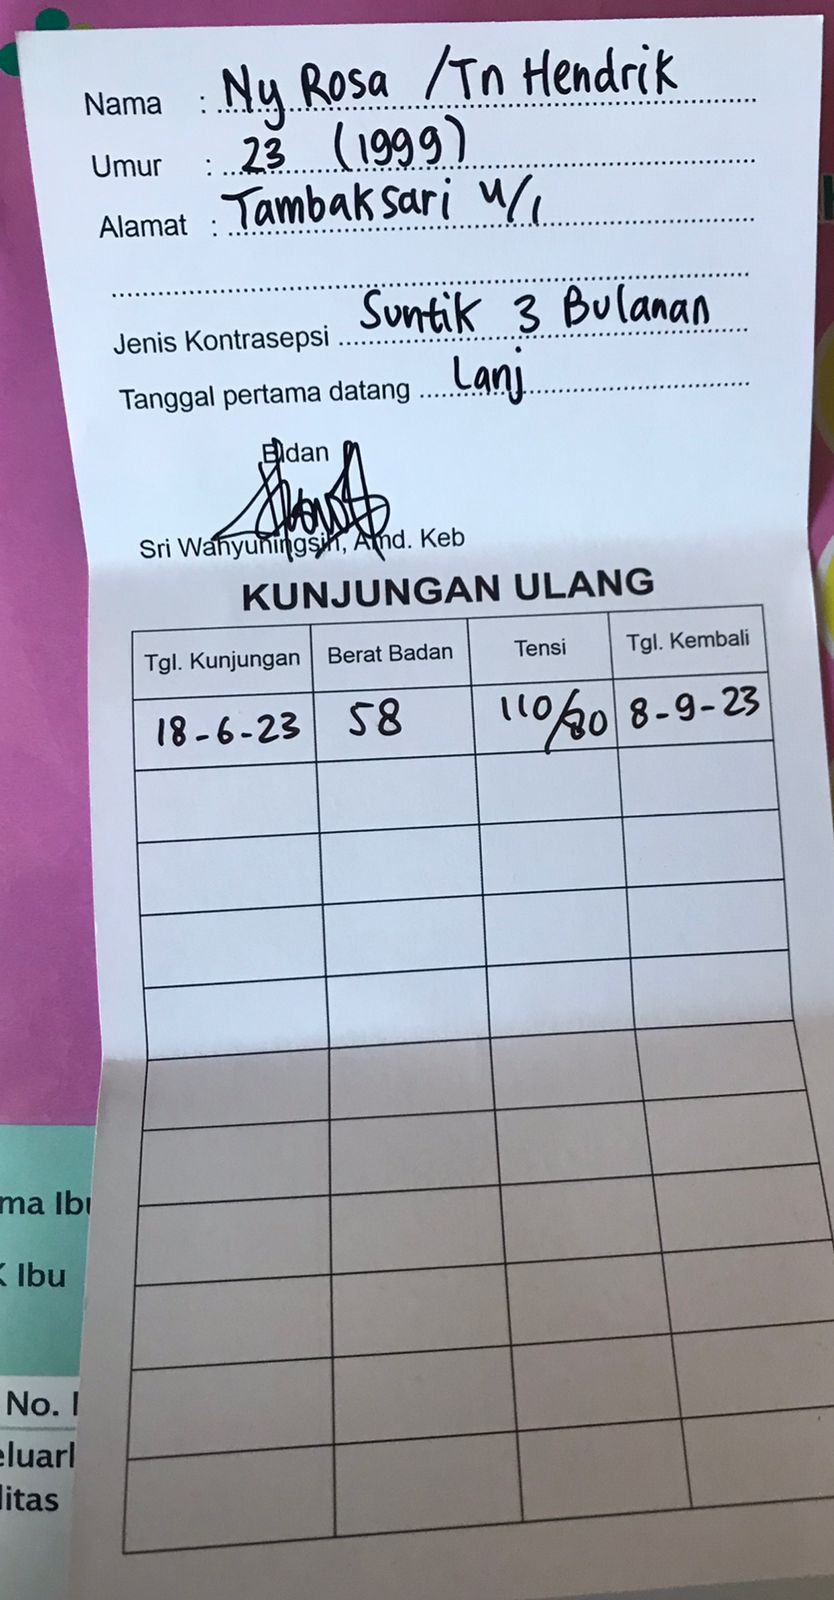 Nama : Ny Rosa / Tn Hendrik
Umur : 23 (1999)
Alamat : Tambaksari 4/1
Jenis Kontrasepsi Suntik 3 Bulanan
Tanggal pertama datang Lanj
Bidan
Sri Wahyuningsih, Amd. Keb
KUNJUNGAN ULANG
Tgl. Kunjungan Berat Badan Tensi Tgl. Kembali
18-6-23 58 110/80 8-9-23
ma Ibu
K Ibu
No. I
eluarl
litas